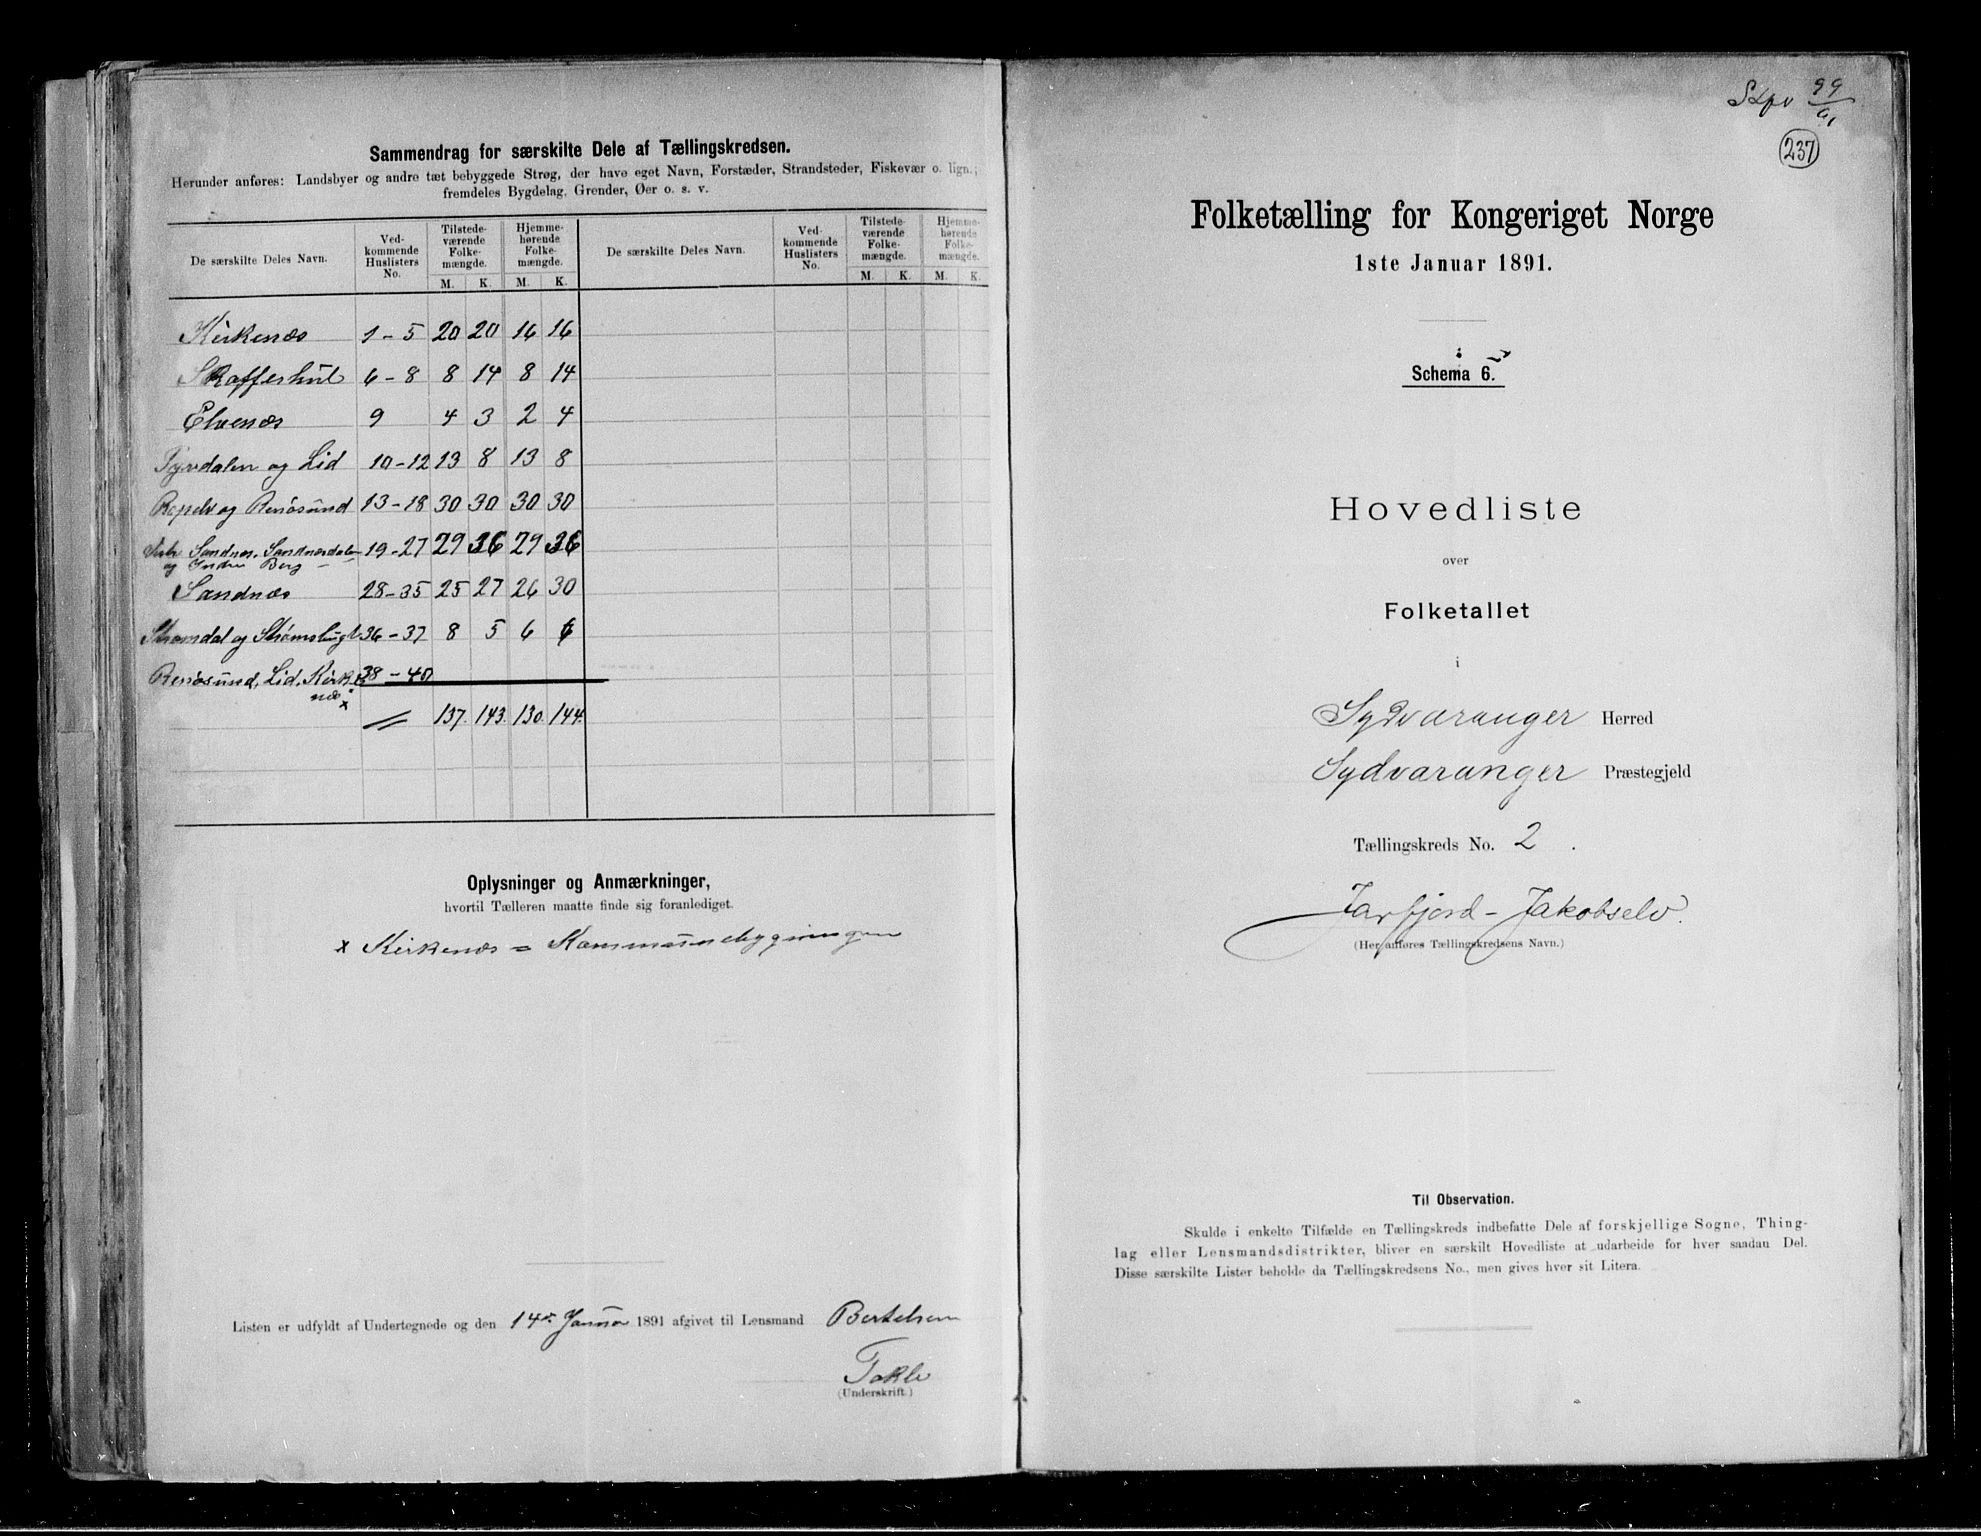 Sammendrag for særskilte Dele af Tællingskredsen.
Herunder anføres: Landsbyer og andre tæt bebyggede Strøg, der have eget Navn, Forstæder, Strandsteder, Fiskevær o. lign.;
fremdeles Bygdelag, Grender, Øer o. s. v.
De særskilte Deles Navn. Ved-kommende Huslisters No. Tilstede-værende Folke-mængde. Hjemme-hørende Folke-mængde. De særskilte Deles Navn. Ved-kommende Huslisters No. Tilstede-værende Folke-mængde. Hjemme-hørende Folke-mængde.
M. K. M. K. M. K. M. K.
Kirkenæs 1-5 20 20 16 16
Skaffeshul 6-8 8 14 8 14
Elvenæs 9 4 3 2 4
og Lid 10-12 13 8 13 8
Ropelv og Renøsund 13-18 30 30 30 30
Sandnæs, Sandnæsdalen 19-27 29 36 29 36
og Indre Berg
Sandnæs 28-35 25 27 26 30
Strømdal og Strømsbugt 36-37 8 5 6 6
Renøsund, Lid, Kirke 38-40
næs x
137. 143. 130. 144.
Oplysninger og Anmærkninger,
hvortil Tælleren maatte finde sig foranlediget.
x Kirkenæs = Kommunebygningen
Listen er udfyldt af Undertegnede og den 14de Januar 1891 afgivet til Lensmand Bertelsen
Takle
(Underskrift.)
99/91
237
Folketælling for Kongeriget Norge
1ste Januar 1891.
Schema 6.
Hovedliste
over
Folketallet
i
Sydvaranger Herred
Sydvaranger Præstegjeld
Tællingskreds No. 2.
Jarfjord - Jakobselv.
(Her anføres Tællingskredsens Navn.)
Til Observation.
Skulde i enkelte Tilfælde en Tællingskreds indbefatte Dele af forskjellige Sogne, Thing-
lag eller Lensmandsdistrikter, bliver en særskilt Hovedliste at udarbeide for hver saadan Del.
Disse særskilte Lister beholde da Tællingskredsens No., men gives hver sit Litera.